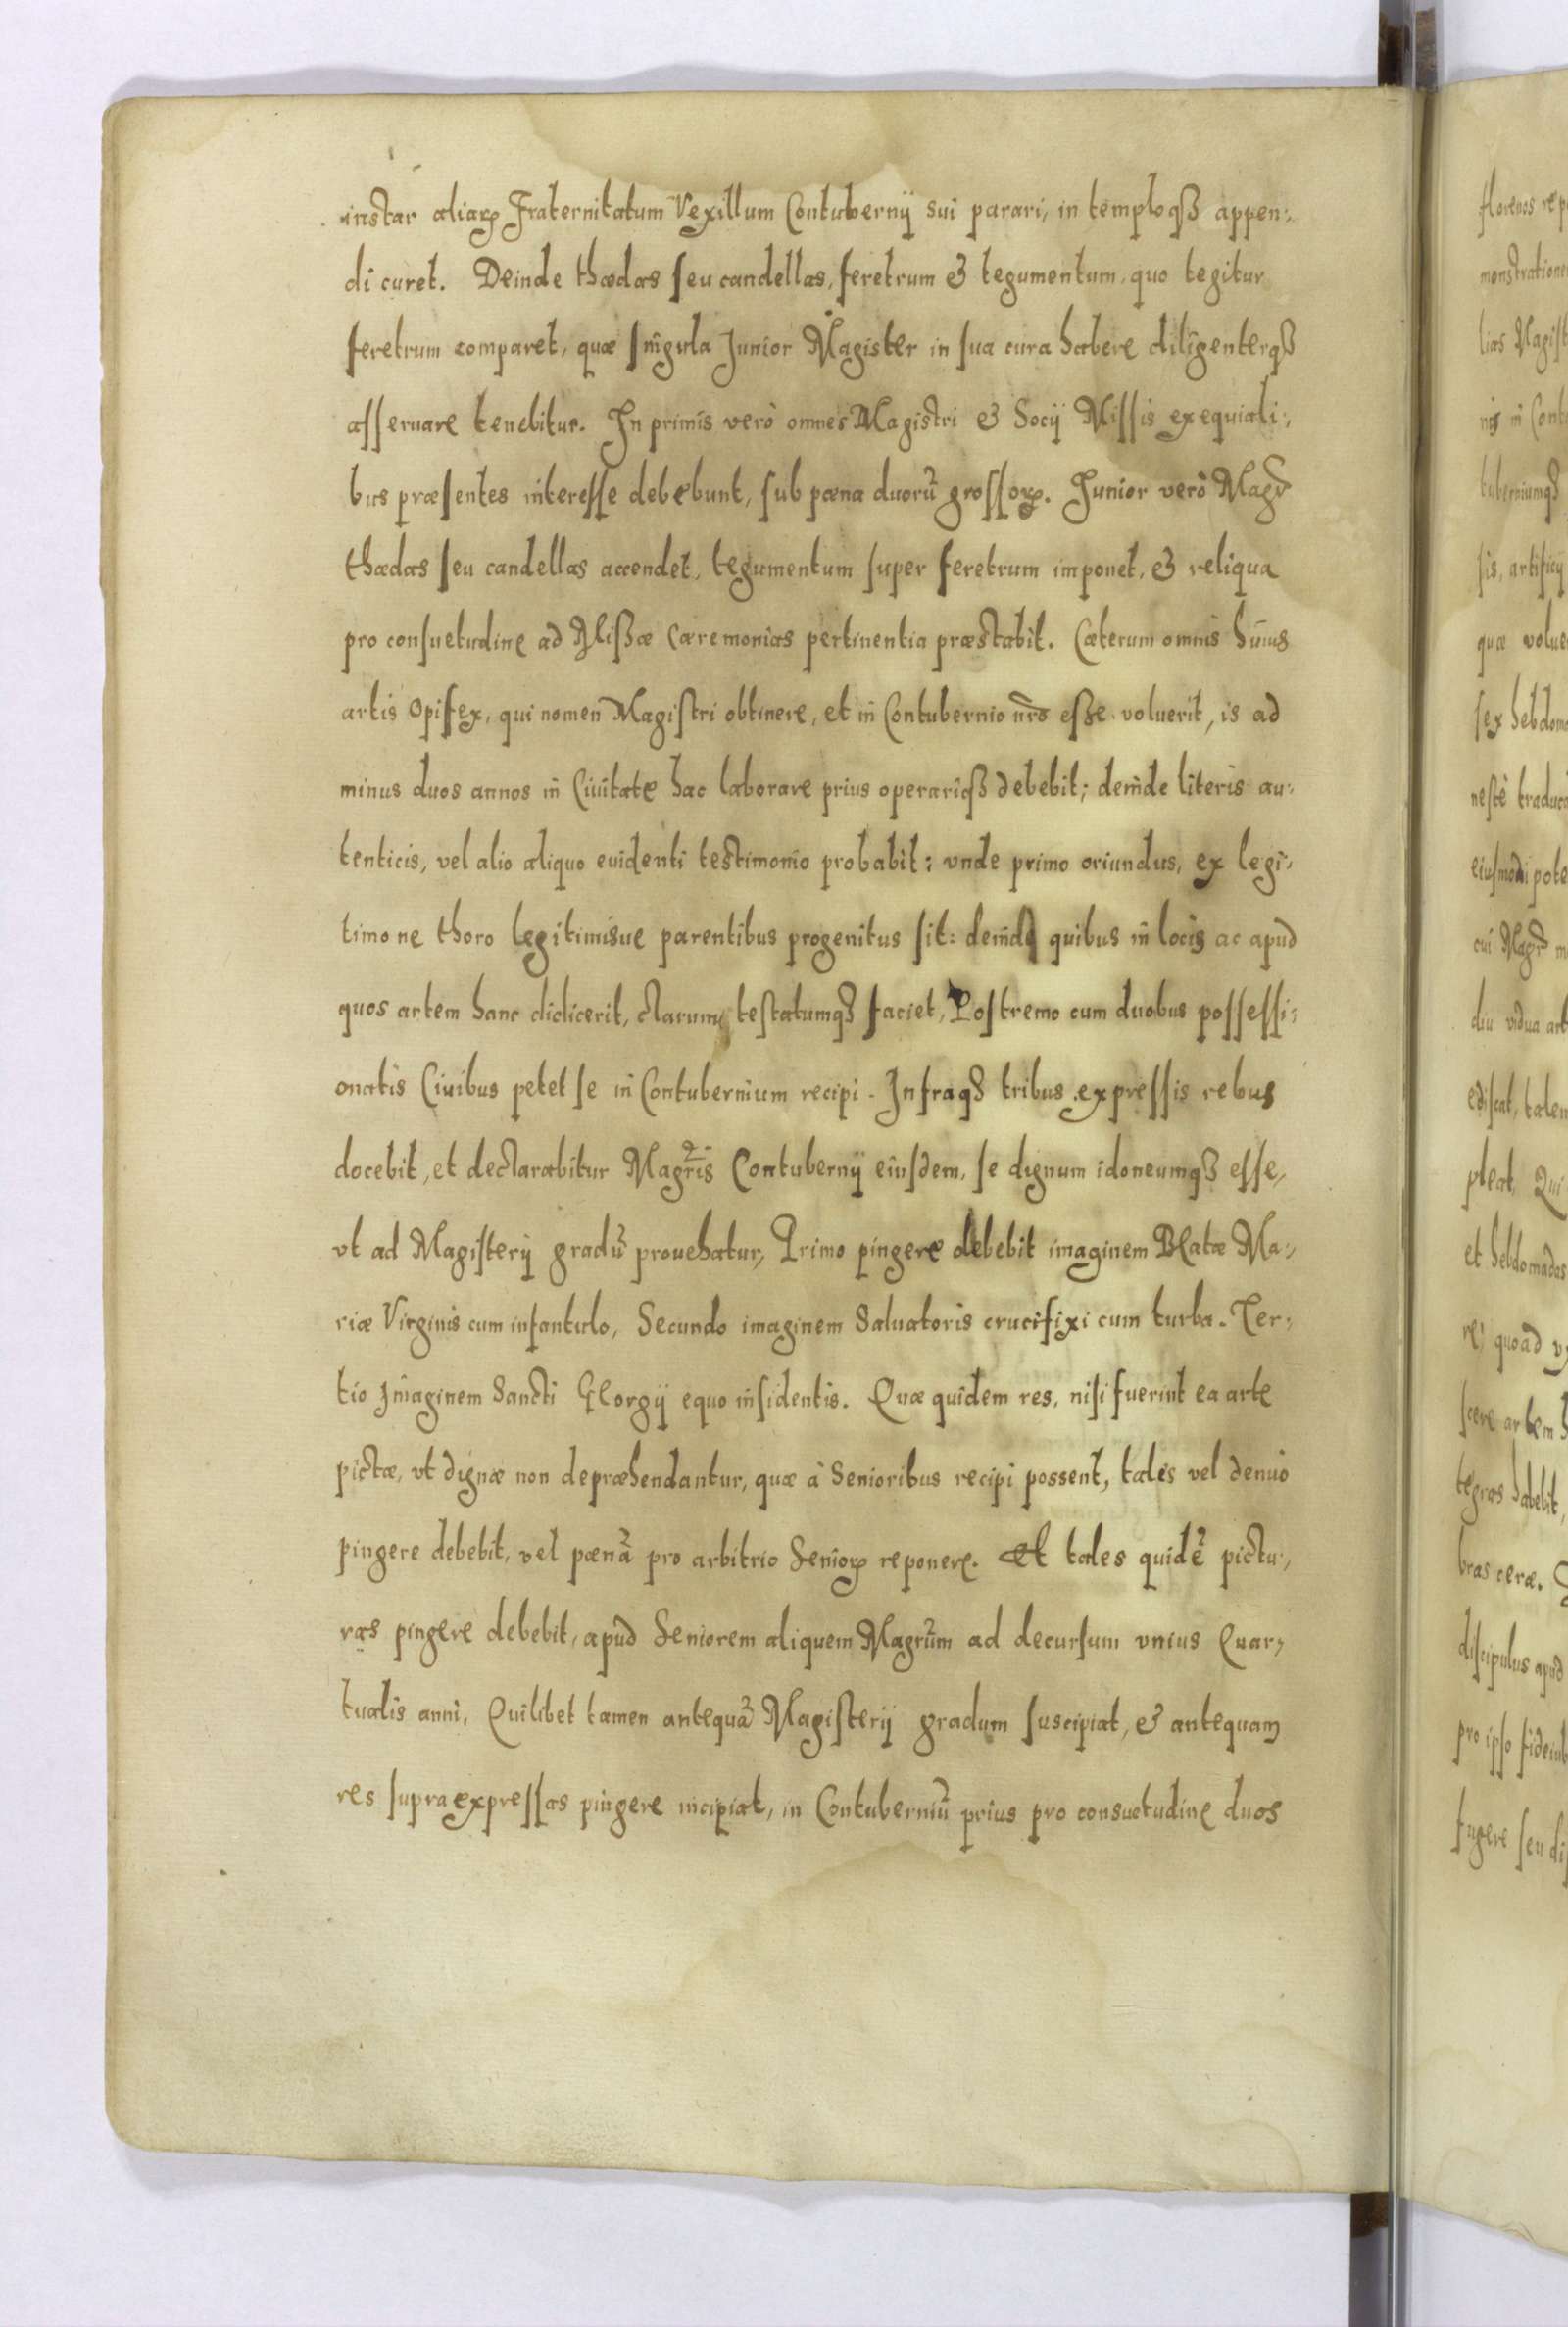 instar aliarꝝ Fraternitatum Vexillum Contubernij sui parari, in temploqꝫ appen-
di curet. Deinde thædas seu candellas, feretrum & tegumentum, quo tegitur
feretrum comparet, quæ singula Junior Magister in sua cura habere diligenterqꝫ
asseruare tenebitur. In primis verò omnes Magistri & Socij Missis exequiali-
bus præsentes interesse debebunt, sub pœna duorũ grossoꝝ. Junior verò Magr̃
thædas seu candellas accendet, tegumentum super feretrum imponet, & reliqua
pro consuetudine ad Missæ Cæremonias pertinentia præstabit. Cæterum omnis huius
artis Opifex, qui nomen Magistri obtinere, et in Contubernio nr̃o esse voluerit, is ad
minus duos annos in Ciuitate hac laborare prius operariqꝫ debebit; deinde literis au-
tenticis, vel alio aliquo euidenti testimonio probabit: vnde primo oriundus, ex legi-
timo ne thoro legitimisue parentibus progenitus sit: deinde quibus in locis ac apud
quos artem hanc didicerit, clarum, testatumqꝫ faciet, Postremo cum duobus possessi-
onatis Ciuibus petet se in Contubernium recipi. Infraqꝫ tribus expressis rebus
docebit, et declarabitur Magr̃is Contubernij eiusdem, se dignum idoneumqꝫ esse,
vt ad Magisterij gradũ prouehatur, Primo pingere debebit imaginem Beatæ Ma-
riæ Virginis cum infantulo, Secundo imaginem Saluatoris crucifixi cum turba. Ter-
tio Imaginem Sancti Georgij equo insidentis. Quæ quidem res, nisi fuerint ea arte
pictæ, vt dignæ non depræhendantur, quæ à Senioribus recipi possent, tales vel denuo
pingere debebit, vel pœnã pro arbitrio Senioꝝ reponere. Et tales quidẽ pictu-
ras pingere debebit, apud Seniorem aliquem Magr̃um ad decursum vnius Quar-
tualis anni, Quilibet tamen antequã Magisterij gradum suscipiat, & antequam
res supra expressas pingere incipiat, in Contuberniũ prius pro consuetudine duos